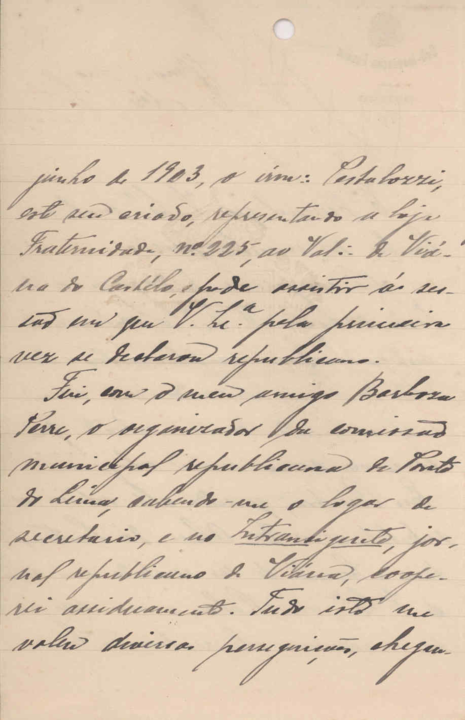 junho de 1903, o irm∴ Pestalozzi,
este seu criado, representando a Loja
Fraternidade, nº 225, ao Val∴ de Viã-
na do Castélo, pode assistir á ses-
são em que V. Ex.ª pela primeira
vez se declarou republicano.
Fui, com o meu amigo Barboza
Perre, o organizador da comissão
municipal republicana de Ponte
do Lima, cabendo-me o logar de
secretario, e no Intransigente, jor-
nal republicano de Viãna, coope-
rei assiduamente. Tudo isto me
valeu diversas perseguições, chegan-